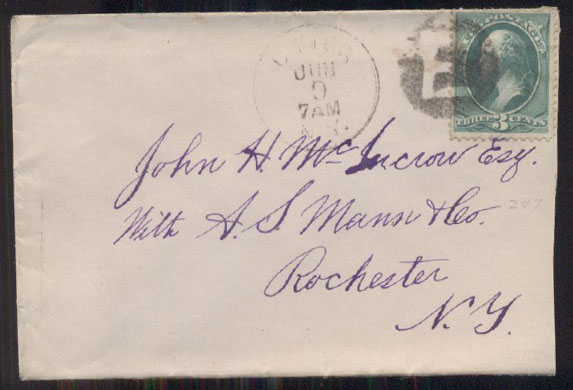 JUN
9
7AM
N.Y.
U.S. POSTAGE
THREE 3 CENTS
John H. McInrow Esq.
With A. S. Mann & Co.
207
Rochester
N.Y.